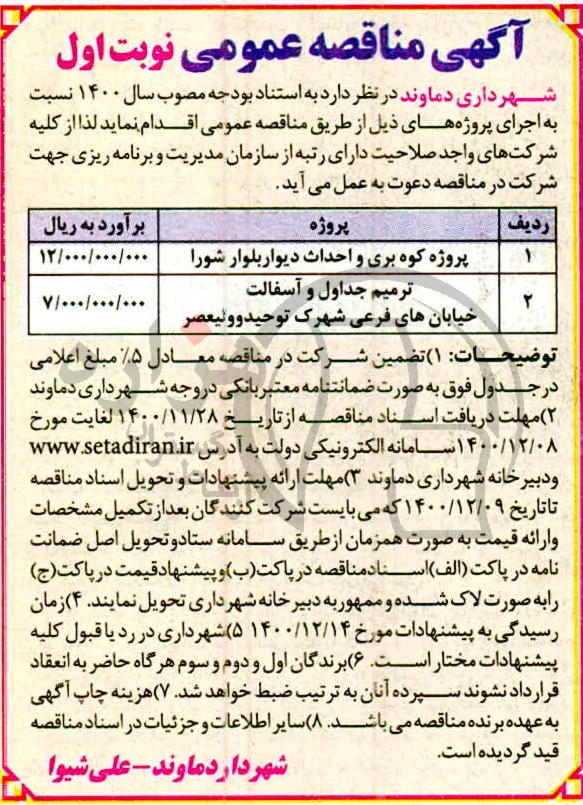 آگهی مناقصه عمومی نوبت اول
شهرداری دماوند در نظر دارد به استناد بودجه مصوب سال ۱۴۰۰ نسبت
به اجرای پروژه‌های ذیل از طریق مناقصه عمومی اقدام نماید لذا از کلیه
شرکت‌های واجد صلاحیت دارای رتبه از سازمان مدیریت و برنامه ریزی جهت
شرکت در مناقصه دعوت به عمل می آید.
ردیف پروژه برآورد به ریال
۱ پروژه کوه بری و احداث دیوار بلوار شورا ۱۲/۰۰۰/۰۰۰/۰۰۰
۲ ترمیم جداول و آسفالت
خیابان های فرعی شهرک توحید و ولیعصر ۷/۰۰۰/۰۰۰/۰۰۰
توضیحات: ۱)تضمین شرکت در مناقصه معادل ۵٪ مبلغ اعلامی
در جدول فوق به صورت ضمانتنامه معتبر بانکی در وجه شهرداری دماوند
۲)مهلت دریافت اسناد مناقصه از تاریخ ۱۴۰۰/۱۱/۲۸ لغایت مورخ
۱۴۰۰/۱۲/۰۸ سامانه الکترونیکی دولت به آدرس www.setadiran.ir
و دبیرخانه شهرداری دماوند ۳)مهلت ارائه پیشنهادات و تحویل اسناد مناقصه
تا تاریخ ۱۴۰۰/۱۲/۰۹ که می بایست شرکت کنندگان بعد از تکمیل مشخصات
و ارائه قیمت به صورت همزمان از طریق سامانه ستاد و تحویل اصل ضمانت
نامه در پاکت (الف) اسناد مناقصه در پاکت(ب) و پیشنهاد قیمت در پاکت(ج)
را به صورت لاک شده و ممهور به دبیرخانه شهرداری تحویل نمایند. ۴)زمان
رسیدگی به پیشنهادات مورخ ۱۴۰۰/۱۲/۱۴ ۵)شهرداری در رد یا قبول کلیه
پیشنهادات مختار است. ۶)برندگان اول و دوم و سوم هرگاه حاضر به انعقاد
قرارداد نشوند سپرده آنان به ترتیب ضبط خواهد شد. ۷)هزینه چاپ آگهی
به عهده برنده مناقصه می باشد. ۸)سایر اطلاعات و جزئیات در اسناد مناقصه
قید گردیده است.
شهردار دماوند - علی شیوا